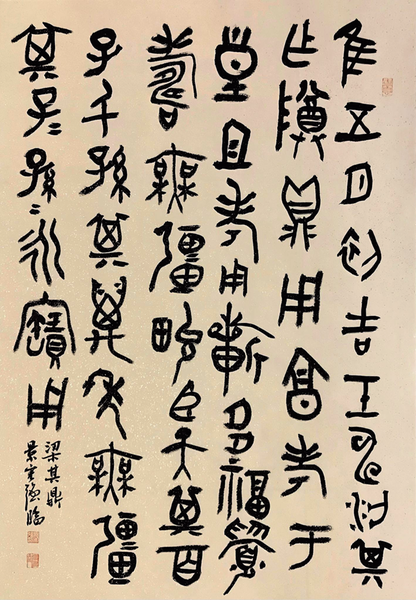 隹五月初吉壬申梁其
乍尊鼎用享考于
皇且考用旂多福眉
壽無疆畯臣天其百
子千孫其萬年無疆
其子〻孫〻永寶用
梁其鼎
臨